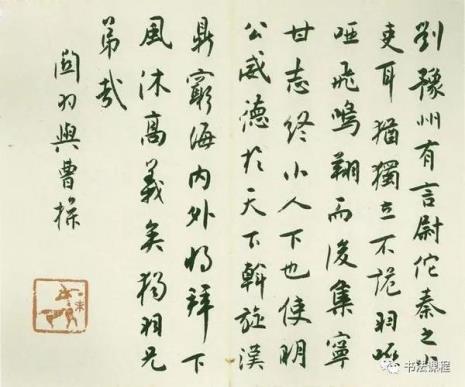 劉豫州有言尉佗秦之小
吏耳猶獨立不詭羽啾
啞飛鳴翔而後集寧
甘志終小人下也使明
公威德於天下斡旋漢
鼎窮海內外將拜下
風沐高義矣獨羽兄
弟哉
關羽與曹操
书法课程